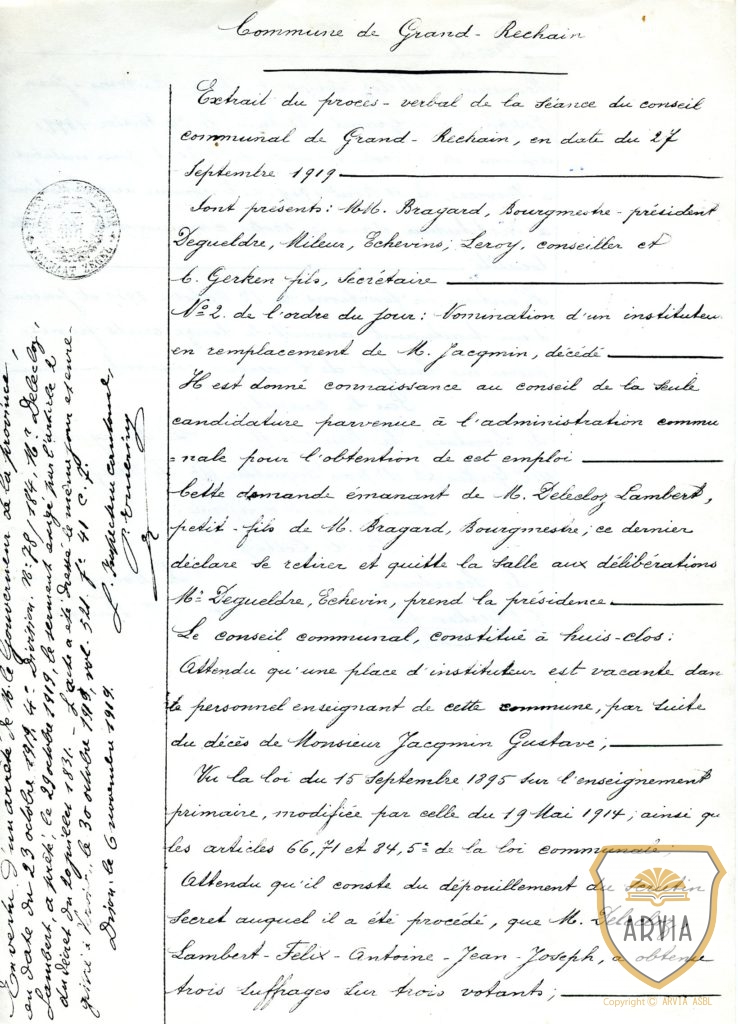 Commune de Grand-Rechain
Extrait du procès-verbal de la séance du conseil
communal de Grand-Rechain, en date du 27
Septembre 1919
Sont présents: MM. Bragard, Bourgmestre-président
Degueldre, Mileur, Echevins; Leroy, conseiller et
C. Gerken fils, Secrétaire
No 2. de l'ordre du jour: Nomination d'un instituteu
en remplacement de M. Jacqmin, décédé
Il est donné connaissance au conseil de la seule
candidature parvenue à l'administration commu
=nale pour l'obtention de cet emploi
Cette demande émanant de M. Delecloz Lambert,
petit-fils de M. Bragard, Bourgmestre; ce dernier
déclare se retirer et quitte la salle aux délibérations
Mr Degueldre, Echevin, prend la présidence
Le conseil communal, constitué à huis-clos:
Attendu qu'une place d'instituteur est vacante dan
le personnel enseignant de cette commune, par suite
du décès de Monsieur Jacqmin Gustave;
Vu la loi du 15 Septembre 1895 sur l'enseignement
primaire, modifiée par celle du 19 Mai 1914; ainsi qu
les articles 66, 71 et 84, 5° de la loi communale;
Attendu qu'il conste du dépouillement du scrutin
secret auquel il a été procédé, que M. Delecloz
Lambert-Felix-Antoine-Jean-Joseph, a obtenu
trois suffrages sur trois votants;
En vertu d'un arrêté de M. le Gouverneur de la province,
en date du 23 octobre 1919, 4e Division. No 78/184, Mr Delecloz,
Lambert, a prêté, le 29 octobre 1919, le serment exigé par l'article 2
du décret du 20 juillet 1831. - L'acte a été dressé le même jour et enre-
gistré à le 30 octobre 1919, vol. 521 fo 41 c. 7.
Dison, le 6 novembre 1919.
L'Inspecteur cantonal,
ARVIA
Copyright © ARVIA ASBL